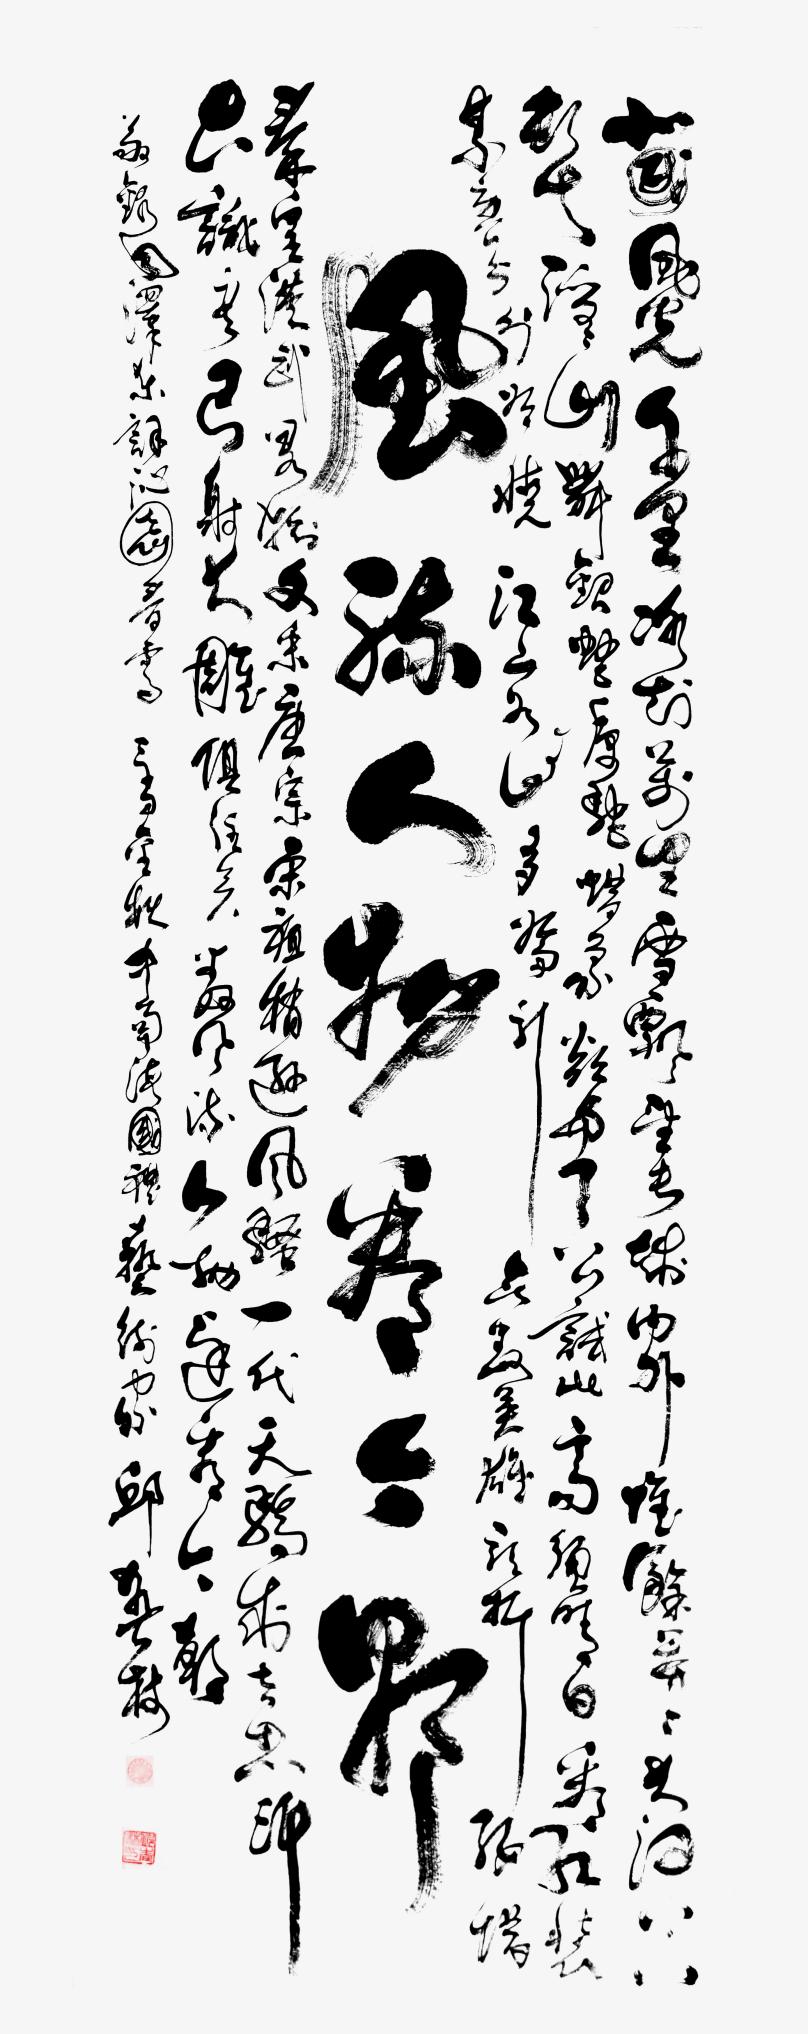 北國風光千里冰封萬里雪飄望長城內外惟餘莽々大河上下
頓失滔々山舞銀蛇原馳蠟象欲與天公試比高須晴日看紅裝
素裹分外妖嬈江山如此多嬌引無數英雄競折腰惜
風流人物看今朝
秦皇漢武略輸文采唐宗宋祖稍遜風騷一代天驕成吉思汗
只識彎弓射大雕俱往矣數風流人物還看今朝
敬錄毛澤東詞沁園春雪金秋中南海國禮藝術家邱